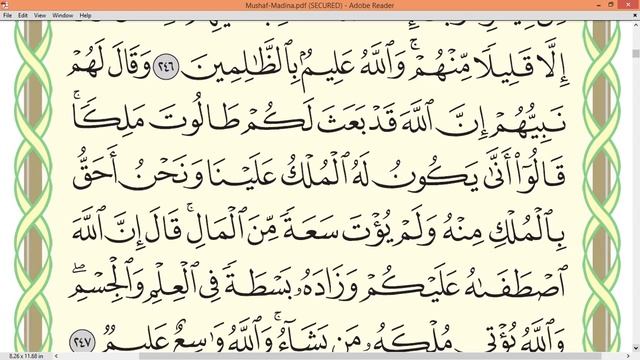 Mushaf-Madina.pdf (SECURED) - Adobe Reader
File Edit View Window Help
إِلَّا قَلِيلًا مِّنْهُمْ ۗ وَٱللَّهُ عَلِيمٌۢ بِٱلظَّـٰلِمِينَ ٢٤٦ وَقَالَ لَهُمْ
نَبِيُّهُمْ إِنَّ ٱللَّهَ قَدْ بَعَثَ لَكُمْ طَالُوتَ مَلِكًا ۚ
قَالُوٓا۟ أَنَّىٰ يَكُونُ لَهُ ٱلْمُلْكُ عَلَيْنَا وَنَحْنُ أَحَقُّ
بِٱلْمُلْكِ مِنْهُ وَلَمْ يُؤْتَ سَعَةً مِّنَ ٱلْمَالِ ۚ قَالَ إِنَّ ٱللَّهَ
ٱصْطَفَىٰهُ عَلَيْكُمْ وَزَادَهُۥ بَسْطَةً فِى ٱلْعِلْمِ وَٱلْجِسْمِ ۖ
وَٱللَّهُ يُؤْتِى مُلْكَهُۥ مَن يَشَآءُ ۚ وَٱللَّهُ وَٰسِعٌ عَلِيمٌ ٢٤٧
8.26 x 11.68 in